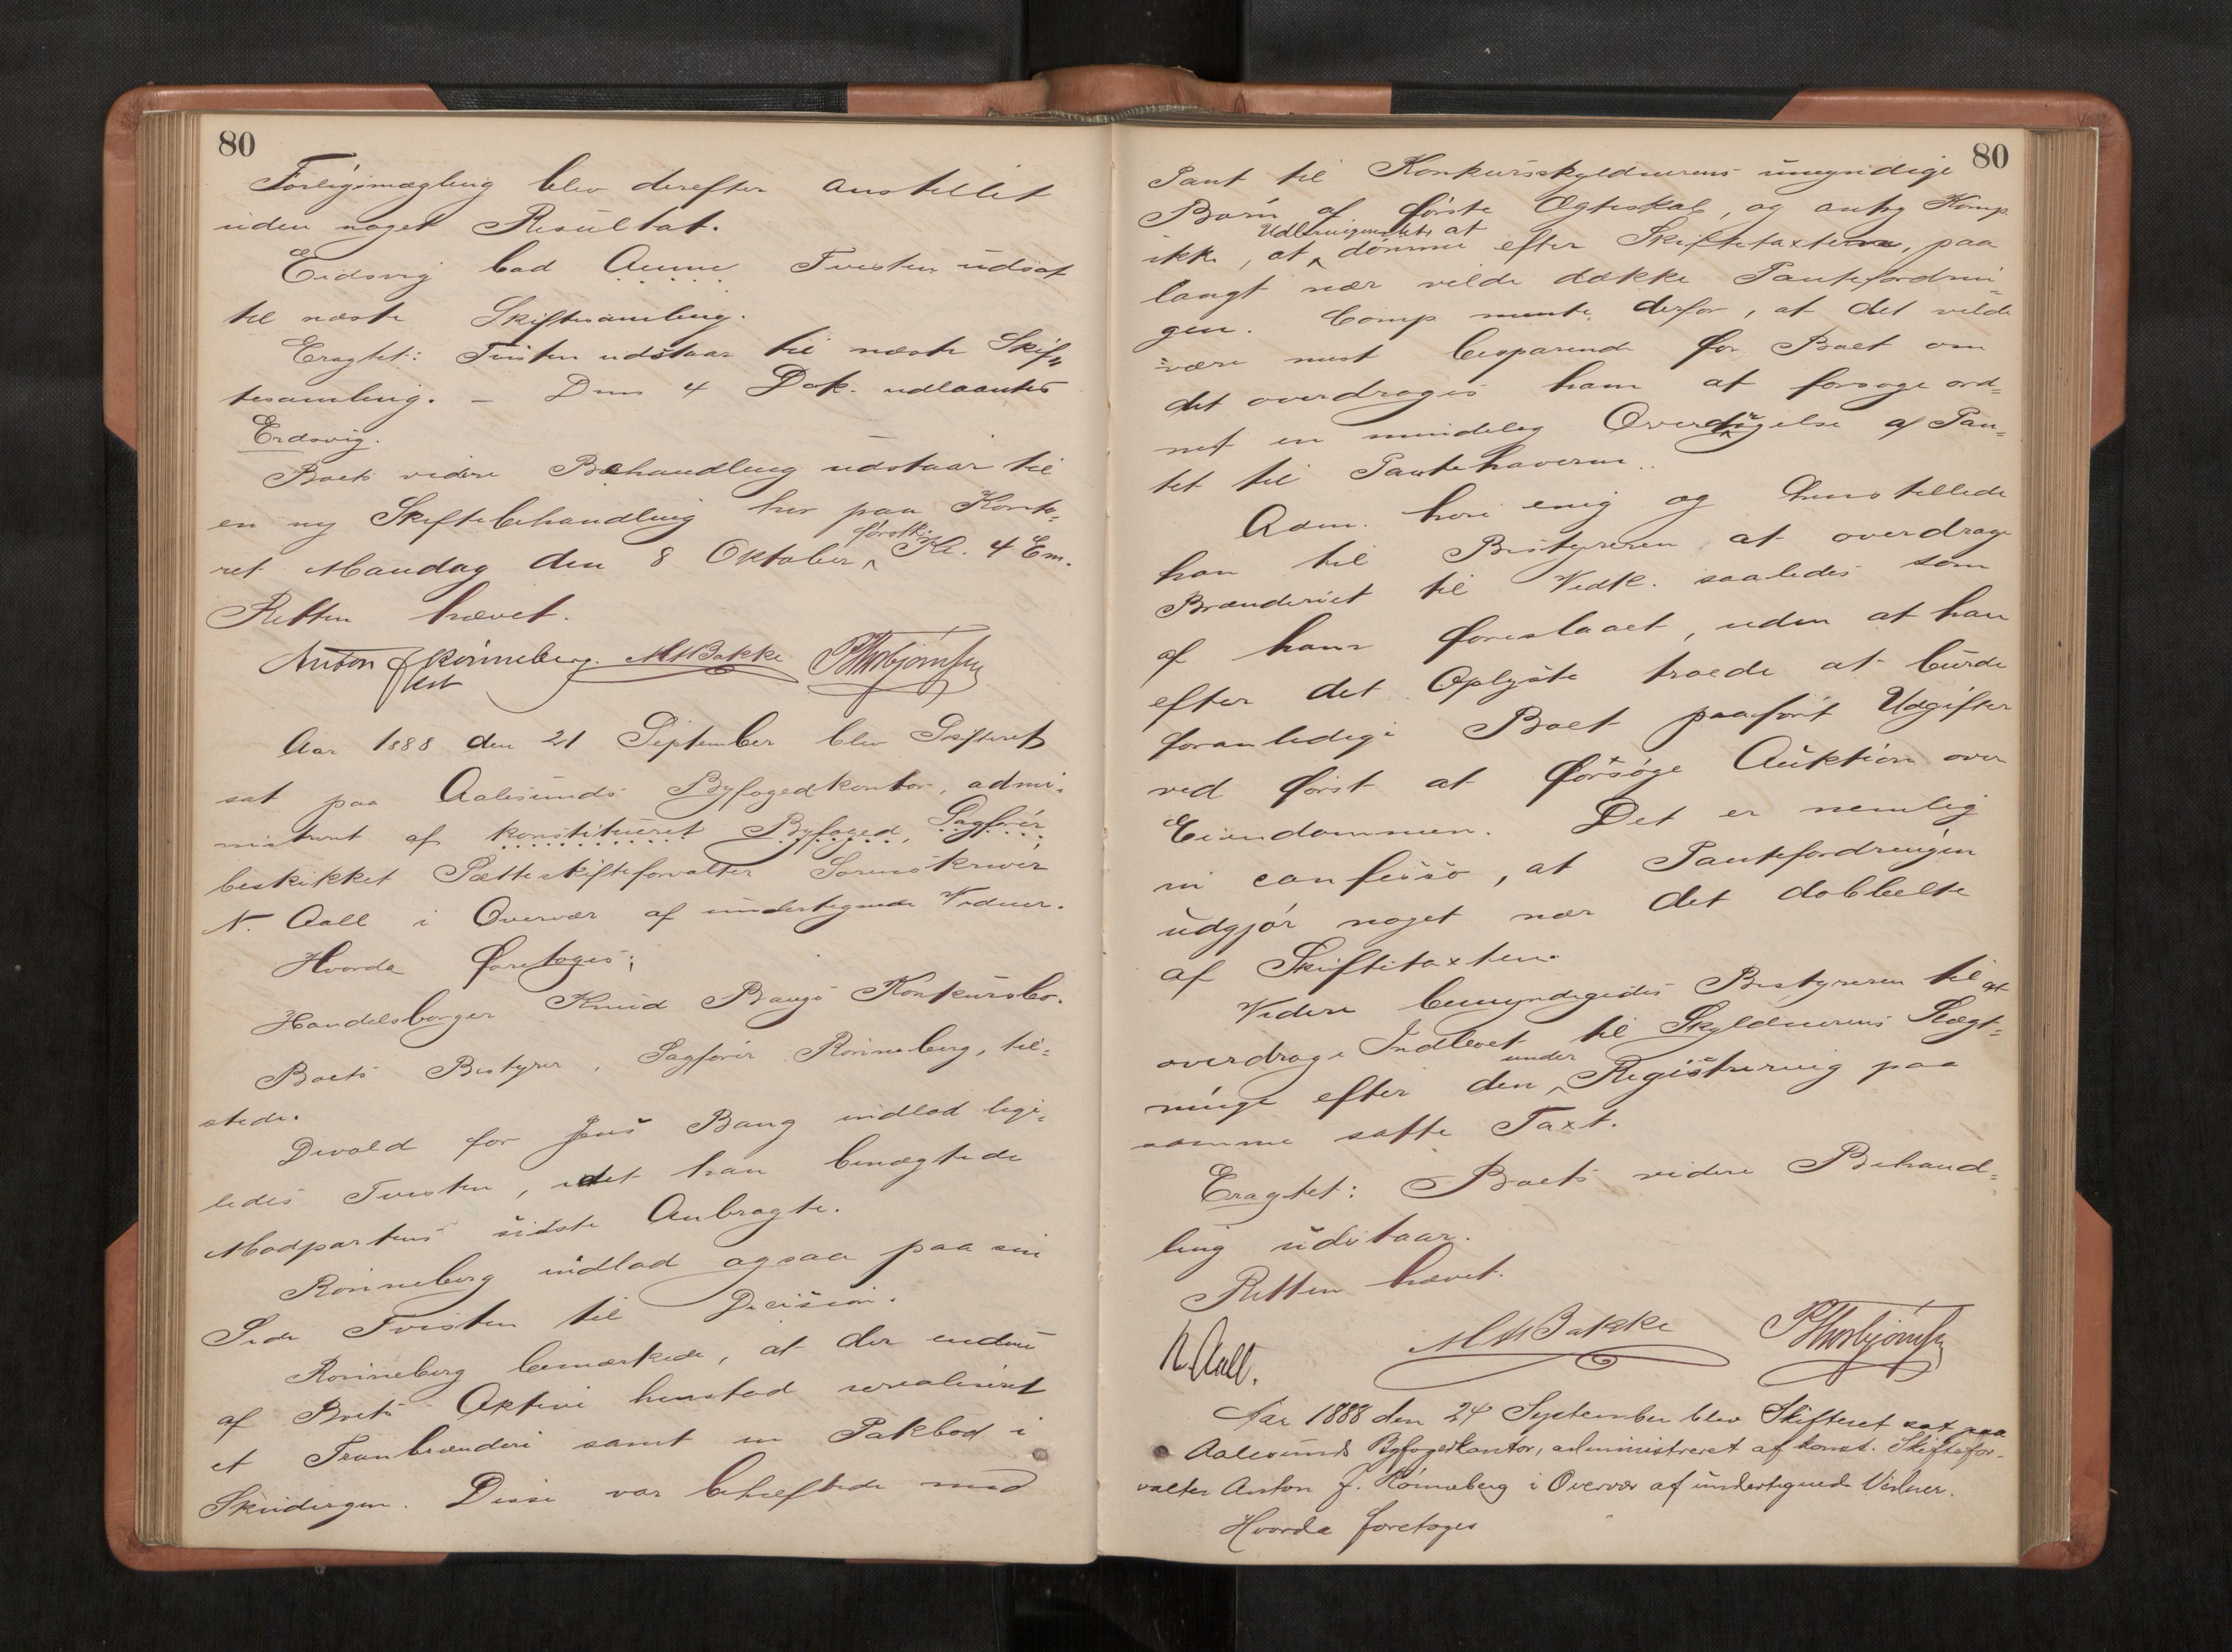 80
Forligsmægling blev derefter anstillet
uden noget Resultat.
Eidsvig bad Anm. Tvisten udsat
til næste Skiftesamling.
Eragtet: Tvisten udstaar til næste Skif„
tesamling. – Dens 4 Dok. udlaantes
Erdsvig.
Boets videre Behandling udstaar til
en ny Skiftebehandling her paa Konto-
førstk.
ret Mandag den 8 Oktober Kl. 4 Em.
Retten hævet.
Anton J Rønneberg. M M Bakke P Thorbjørnsen
kst
Aar 1888 den 21 September blev Skifteret
sat paa Aalesunds Byfogedkontor, admi-
nistreret af konstitueret Byfoged, Sagfører,
beskikket Sætteskifteforvalter Sorenskriver
N. Aall i Overvær af undertegnede Vidner.
Hvorda foretoges:
Handelsborger Knud Bangs Konkursbo.
Boets Bestyrer, Sagfører Rønneberg, til-
stede.
Devold for Jens Bang indlod lige-
ledes Tvisten, idet han benægtede
Modpartens sidste Anbragte.
Rønneberg indlod ogsaa paa sin
Side Tvisten til Decision.
Rønneberg bemærkede, at der endnu
af Boets Aktivi henstod urealiseret
et Tranbrænderi samt en Pakbod i
Skindergen. Disse var beheftede med
80
Pant til Konkursskyldnerens umyndige
Børn af første Ægteskab, og antog Komp.
Udbringendets at
ikke, at dømme efter Skiftetaxten, paa
langt nær vilde dække Pantefordrin-
gen. Comp mente derfor, at det vilde
være mest besparende for Boet om
det overdroges ham at forsøge ord-
net en mindelig Overdragelse af Pan-
tet til Pantehaverne.
Adm. heri enig og henstillede
han til Bestyreren at overdrage
Brænderiet til Vedk. saaledes som
af ham foreslaaet, uden at han
efter det Oplyste troede at burde
foranledige Boet paaført Udgifter
ved først at forsøge Auktion over
Eiendommen. Det er nemlig
in confesso, at Pantefordringen
udgjør noget nær det dobbelte
af Skiftetaxten.
Videre bemyndigedes Bestyreren til at
overdrage Indboet til Skyldnerens Slægt-
under
ninge efter den Registrering paa
samme satte Taxt.
Eragtet: Boets videre Behand-
ling udstaar.
Retten hævet.
N. Aall. M M Bakke P Thorbjørnsen
Aar 1888 den 24 September blev Skifteret sat paa
Aalesunds Byfogedkontor, administreret af konst. Skiftefor-
valter Anton J. Rønneberg i Overvær af undertegnede Vidner.
Hvorda foretoges